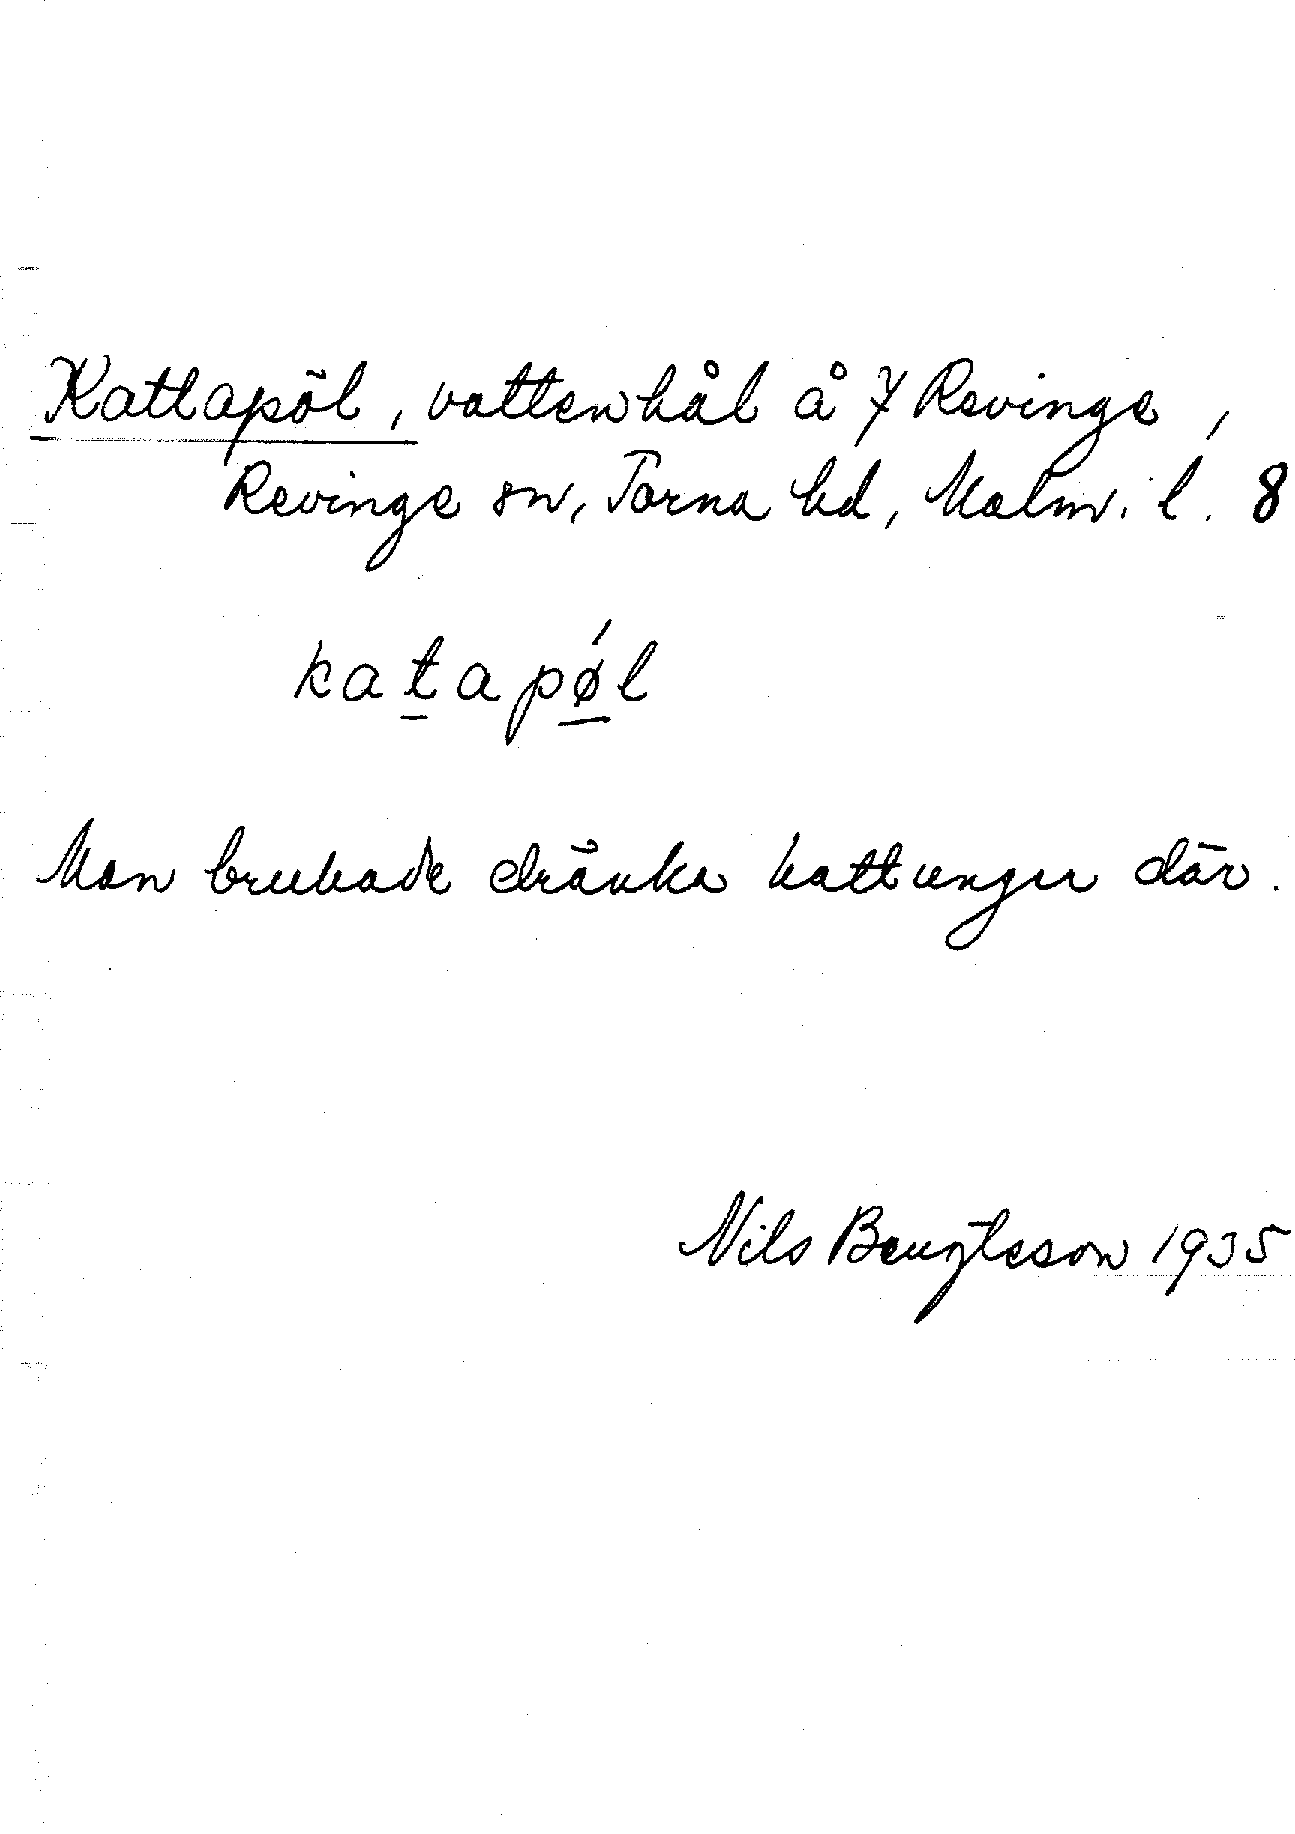 Kattapöl, vattenhål å 7 Revinge,
Revinge sn, Torna hd, Malm. l. 8
katapøĺ
Man brukade dränka kattungar där.
Nils Bengtsson 1935